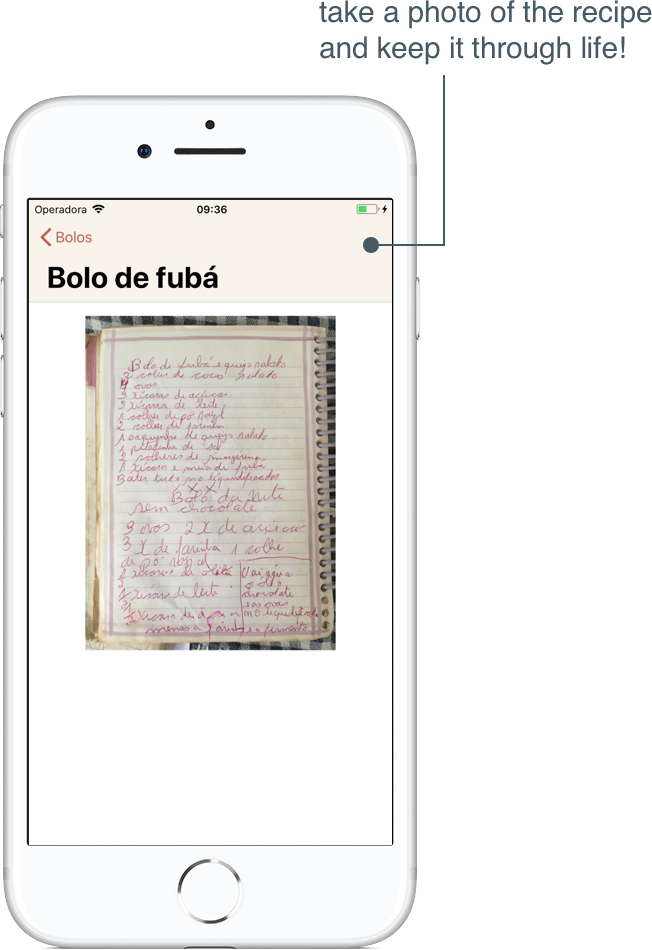 take a photo of the recipe
and keep it through life!
Operadora
09:36
Bolos
Bolo de fubá
Bolo de fubá e queijo ralado
2 colher de coco ralado
4 ovos
3 xícaras de açúcar
3 xícaras de leite,
1 colher de pó royal
2 colher de farinha
1 de queijo ralado
1 pitadinha de sal
2 colheres de margarina,
1 xícara e meia de fubá
Bater tudo no liquidificador
Bolo da
sem chocolate
3 ovos 2 X de açúcar
3 X de farinha 1 colhe
de pó royal
1 xícara de
1 xicara de leite
Xicara de
menos a
Vai
o óleo
chocolate
e as ovos
no liquidificador
e o fermento